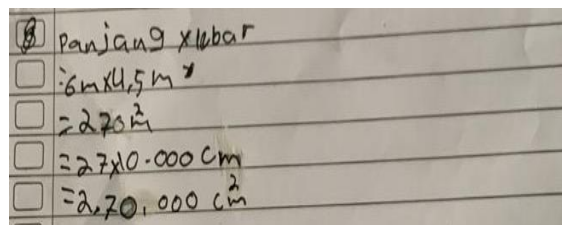 8 Panjang x lebar
= 6m x 4,5 m
= 270 m²
= 27x10.000 cm
= 2,70,000 cm²